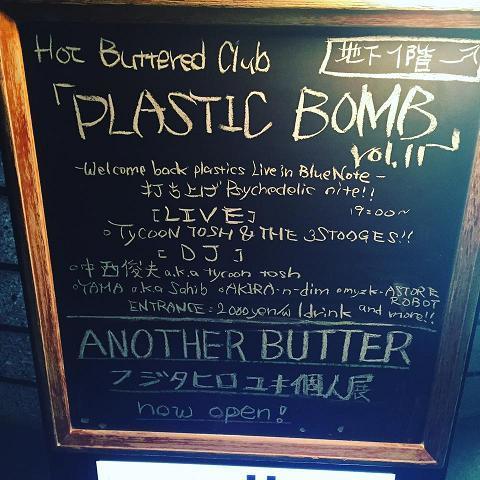 Hot Buttered Club
地下1階
「PLASTIC BOMB
vol.11」
-Welcome back plastics Live in BlueNote-
打ち上げ Psychedelic nite!!
[LIVE] 19:00~
。TYCOON TOSH & THE 3STOOGES!!
[DJ]
。中西俊夫 a.k.a tycoon tosh
。YAMA a.k.a Sahib 。AKIRA-n-dim 。myzk-ASTORE ROBOT
ENTRANCE : 2000yen/w 1drink and more!!
ANOTHER BUTTER
フジタヒロユキ個人展
now open!